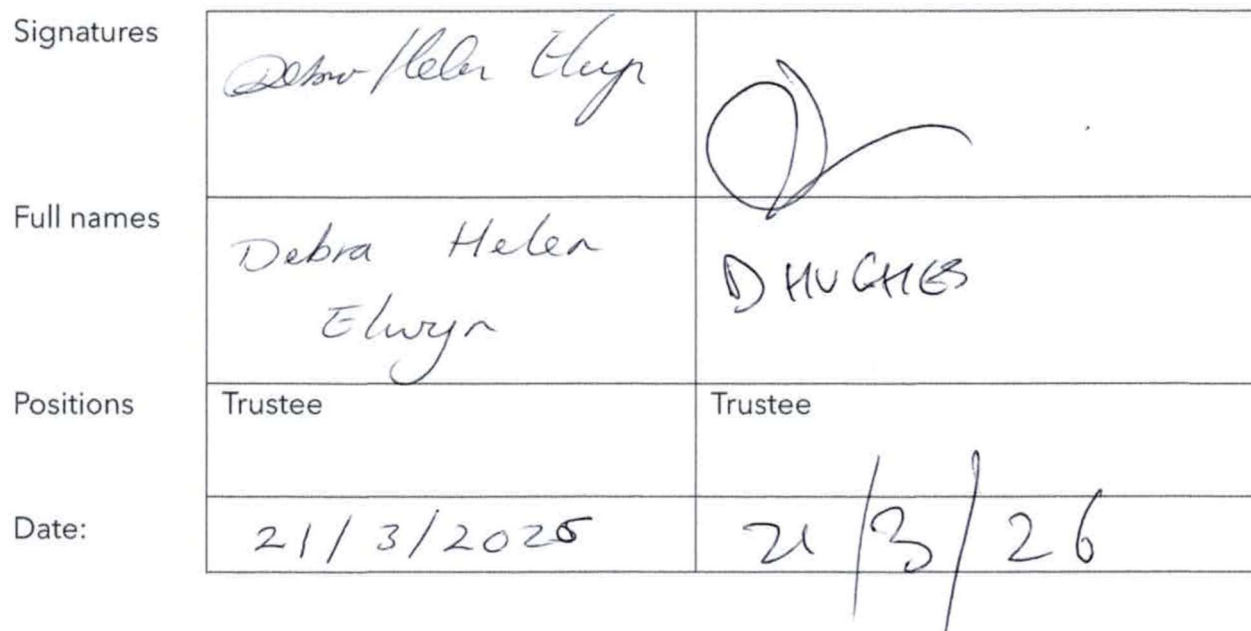 Signatures
Debra Helen Elwyn
Full names
Debra Helen
Elwyn
D HUGHES
Positions
Trustee
Trustee
Date:
21/3/2026
21/3/26